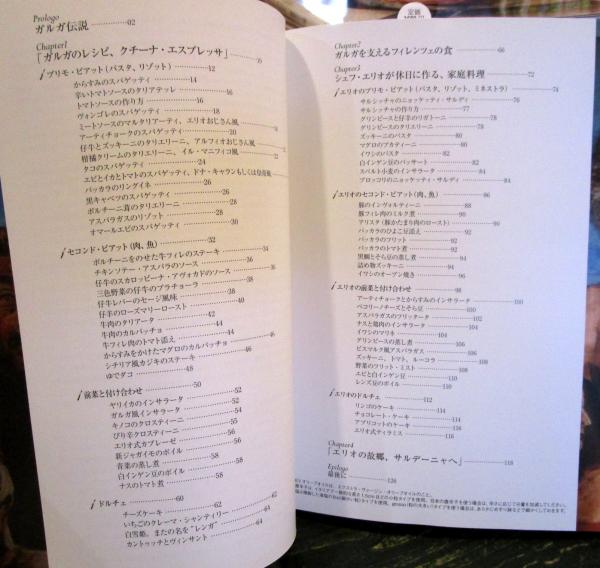 Prologo
ガルガ伝説 02
Chapter1
「ガルガのレシピ、クチーナ・エスプレッサ」
プリモ・ピアット(パスタ、リゾット) 12
からすみのスパゲッティ 14
辛いトマトソースのタリアテッレ 16
トマトソースの作り方 16
ヴォンゴレのスパゲッティ 18
ミートソースのマルタリアーティ、エリオおじさん風
アーティチョークのスパゲッティ 20
仔牛とズッキーニのタリエリーニ、アルフィオおじさん風
柑橘クリームのタリエリーニ、イル・マニフィコ風
タコのスパゲッティ 24
エビとイカとトマトのスパゲッティ、ドナ・キャラン
バッカラのリングイネ 26
黒キャベツのスパゲッティ 26
ポルチーニ茸のタリエリーニ 28
アスパラガスのリゾット 28
オマールエビのスパゲッティ 30
セコンド・ピアット(肉、魚) 32
ポルチーニをのせた牛フィレのステーキ 34
チキンソテー・アスパラのソース 36
仔牛のスカロッピーナ・アヴォカドのソース 36
三色野菜の仔牛のブラチョーラ 38
仔牛レバーのセージ風味 38
仔羊のローズマリーロースト 40
牛肉のタリアータ 42
牛肉のカルパッチョ 42
牛フィレ肉のトマト添え 44
からすみをかけたマグロのカルパッチョ 44
シチリア風カジキのステーキ 46
ゆでダコ 48
前菜と付け合わせ 50
ヤリイカのインサラータ 52
ガルガ風インサラータ 52
キノコのクロスティーニ 54
ぴり辛クロスティーニ 55
エリオ式カプレーゼ 56
新ジャガイモのボイル 56
青菜の蒸し煮 58
白インゲン豆のボイル 58
ナスのトマト煮 58
ドルチェ 60
チーズケーキ 62
いちごのクレーマ・シャンティリー 64
白雪姫、またの名を“レンガ” 64
カントゥッチとヴィンサント 64
定価
Chapter2
ガルガを支えるフィレンツェの食 66
Chapter3
シェフ・エリオが休日に作る、家庭料理 72
エリオのプリモ・ピアット(パスタ、リゾット、ミネストラ) 74
サルシッチャのニョッケッティ・サルディ 76
サルシッチャの作り方 77
グリンピースと仔羊のリガトーニ 78
グリンピースのタリエリーニ 78
ズッキーニのパスタ 80
マグロのブカティーニ 80
イワシのパスタ 82
白インゲン豆のパッサート 82
スペルト小麦のインサラータ 84
ブロッコリのニョッケッティ・サルディ 84
エリオのセコンド・ピアット(肉、魚) 86
豚のインヴォルティーニ 88
豚フィレ肉のミルク煮 90
アリスタ(豚かたまり肉のロースト) 90
バッカラのひよこ豆添え 92
バッカラのフリット 92
バッカラのトマト煮 92
黒鯛とそら豆の蒸し煮 94
詰め物ズッキーニ 94
イワシのオーブン焼き 96
エリオの前菜と付け合わせ 98
アーティチョークとからすみのインサラータ 100
ペコリーノチーズとそら豆 100
アスパラガスのフリッタータ 102
ナスと鶏肉のインサラータ 104
イワシのマリネ 104
グリンピースの蒸し煮 106
ビスマルク風アスパラガス 106
ズッキーニ、トマト、ルーコラ 108
野菜のフリット・ミスト 108
エビと白インゲン豆 110
レンズ豆のボイル 110
エリオのドルチェ 112
リンゴのケーキ 114
チョコレート・ケーキ 114
アプリコットのケーキ 116
エリオ式ティラミス 116
Chapter4
「エリオの故郷、サルデーニャへ」 118
Epilogo
最後に 126